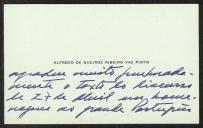 ALFREDO DE QUEIROZ RIBEIRO VAZ PINTO
agradece muito penhorada-
mente o texto do discurso
de 27 de Abril em home-
nagem ao grande Português